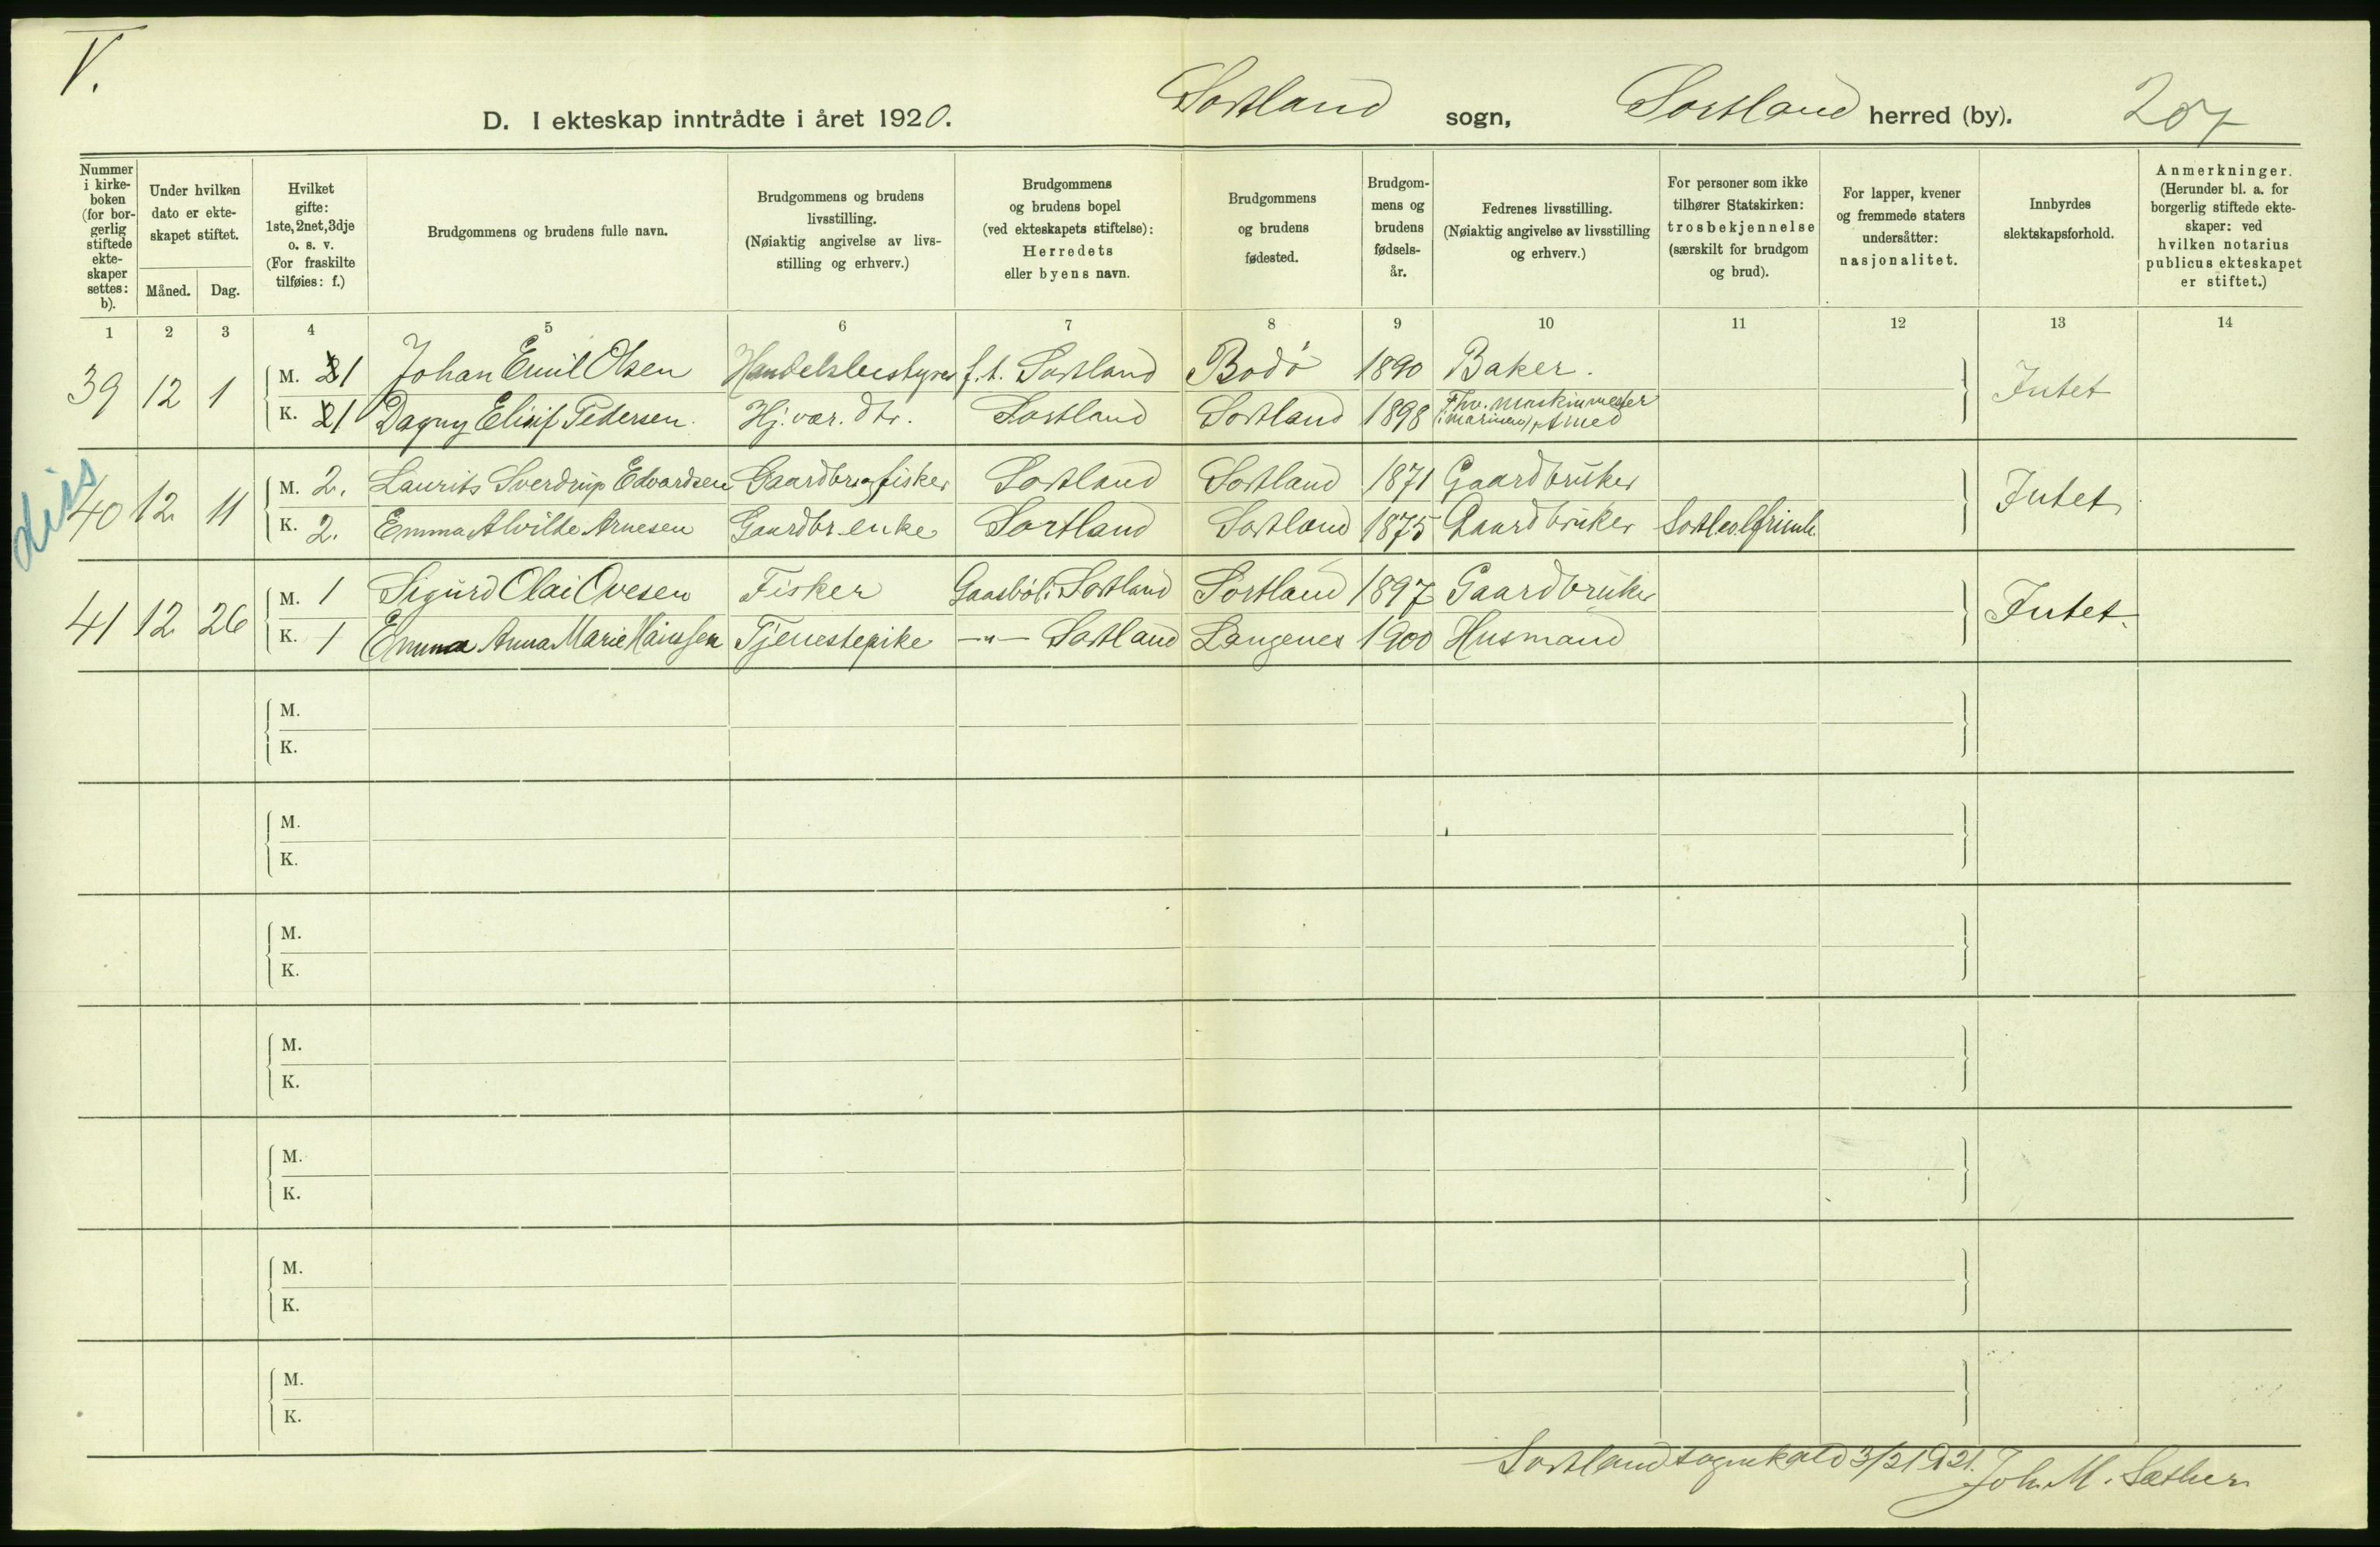 V.
D. I ekteskap inntrådte i året 1920. Sortland sogn, Sortland herred (by). 207
Nummer i kirke-boken (for bor-gerlig stiftede ekte-skaper settes: b).
Under hvilken dato er ekte-skapet stiftet.
Måned. Dag.
Hvilket gifte: 1ste, 2net, 3dje o. s. v. (For fraskilte tilføies: f.)
Brudgommens og brudens fulle navn.
Brudgommens og brudens livsstilling. (Nøiaktig angivelse av livs-stilling og erhverv.)
Brudgommens og brudens bopel (ved ekteskapets stiftelse): Herredets eller byens navn.
Brudgommens og brudens fødested.
Brudgom-mens og brudens fødsels-år.
Fedrenes livsstilling. (Nøiaktig angivelse av livsstilling og erhverv.)
For personer som ikke tilhører Statskirken: trosbekjennelse (særskilt for brudgom og brud).
For lapper, kvener og fremmede staters undersåtter: nasjonalitet.
Innbyrdes slektskapsforhold.
Anmerkninger. (Herunder bl. a. for borgerlig stiftede ekte-skaper: ved hvilken notarius publicus ekteskapet er stiftet.)
1 2 3 4 5 6 7 8 9 10 11 12 13 14
39 12 1 M. 1 Johan Emil Olsen Handelsbestyrer f.t. Sortland Bodø 1890 Baker. Intet
K. 1 Dagny Elisif Pedersen. Hj. vær. dtr. Sortland Sortland 1898 Fhv. maskinmester i marinen
40 12 11 M. 2. Laurits Sverdrup Edvardsen Gaardbr og fisker Sortland Sortland 1871 Gaardbruker Intet
K. 2. Emma Alvilde Arnesen Gaardbr. enke Sortland Sortland 1875 Gaardbruker
diss
41 12 26 M. 1 Sigurd Olai Ovesen Fisker Gaasbøl i Sortland Sortland 1897 Gaardbruker Intet.
K. 1 Emma Anna Marie Hanssen Tjenestepike —"— Sortland Langenes 1900 Husmand
M.
K.
M.
K.
M.
K.
M.
K.
M.
K.
M.
K.
M.
K.
Sortland sognekald 3/2 1921. Joh. M. Sæther